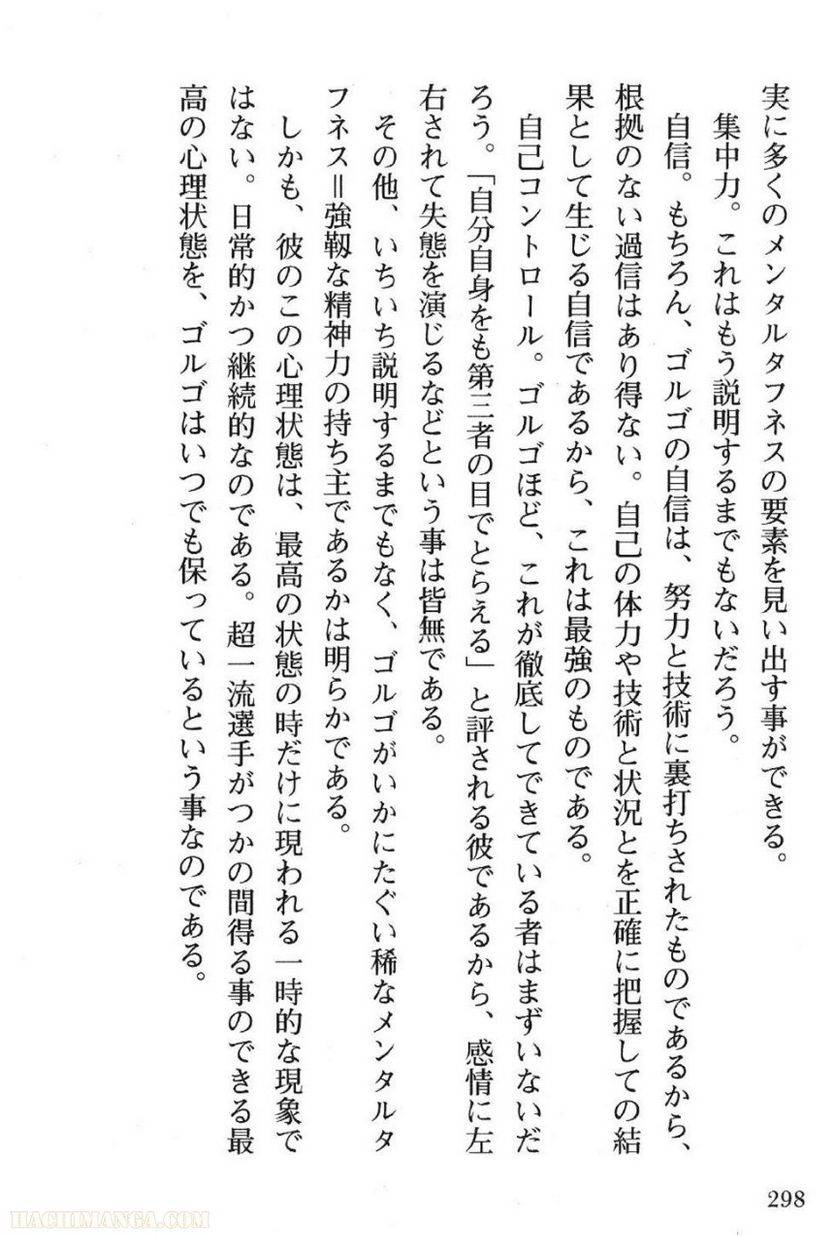 実に多くのメンタルタフネスの要素を見い出す事ができる。
集中力。これはもう説明するまでもないだろう。
自信。もちろん、ゴルゴの自信は、努力と技術に裏打ちされたものであるから、
根拠のない過信はあり得ない。自己の体力や技術と状況とを正確に把握しての結
果として生じる自信であるから、これは最強のものである。
自己コントロール。ゴルゴほど、これが徹底してできている者はまずいないだ
ろう。「自分自身をも第三者の目でとらえる」と評される彼であるから、感情に左
右されて失態を演じるなどという事は皆無である。
その他、いちいち説明するまでもなく、ゴルゴがいかにたぐい稀なメンタルタ
フネス＝強靱な精神力の持ち主であるかは明らかである。
しかも、彼のこの心理状態は、最高の状態の時だけに現われる一時的な現象で
はない。日常的かつ継続的なのである。超一流選手がつかの間得る事のできる最
高の心理状態を、ゴルゴはいつでも保っているという事なのである。
298
HACHIMANGA.COM